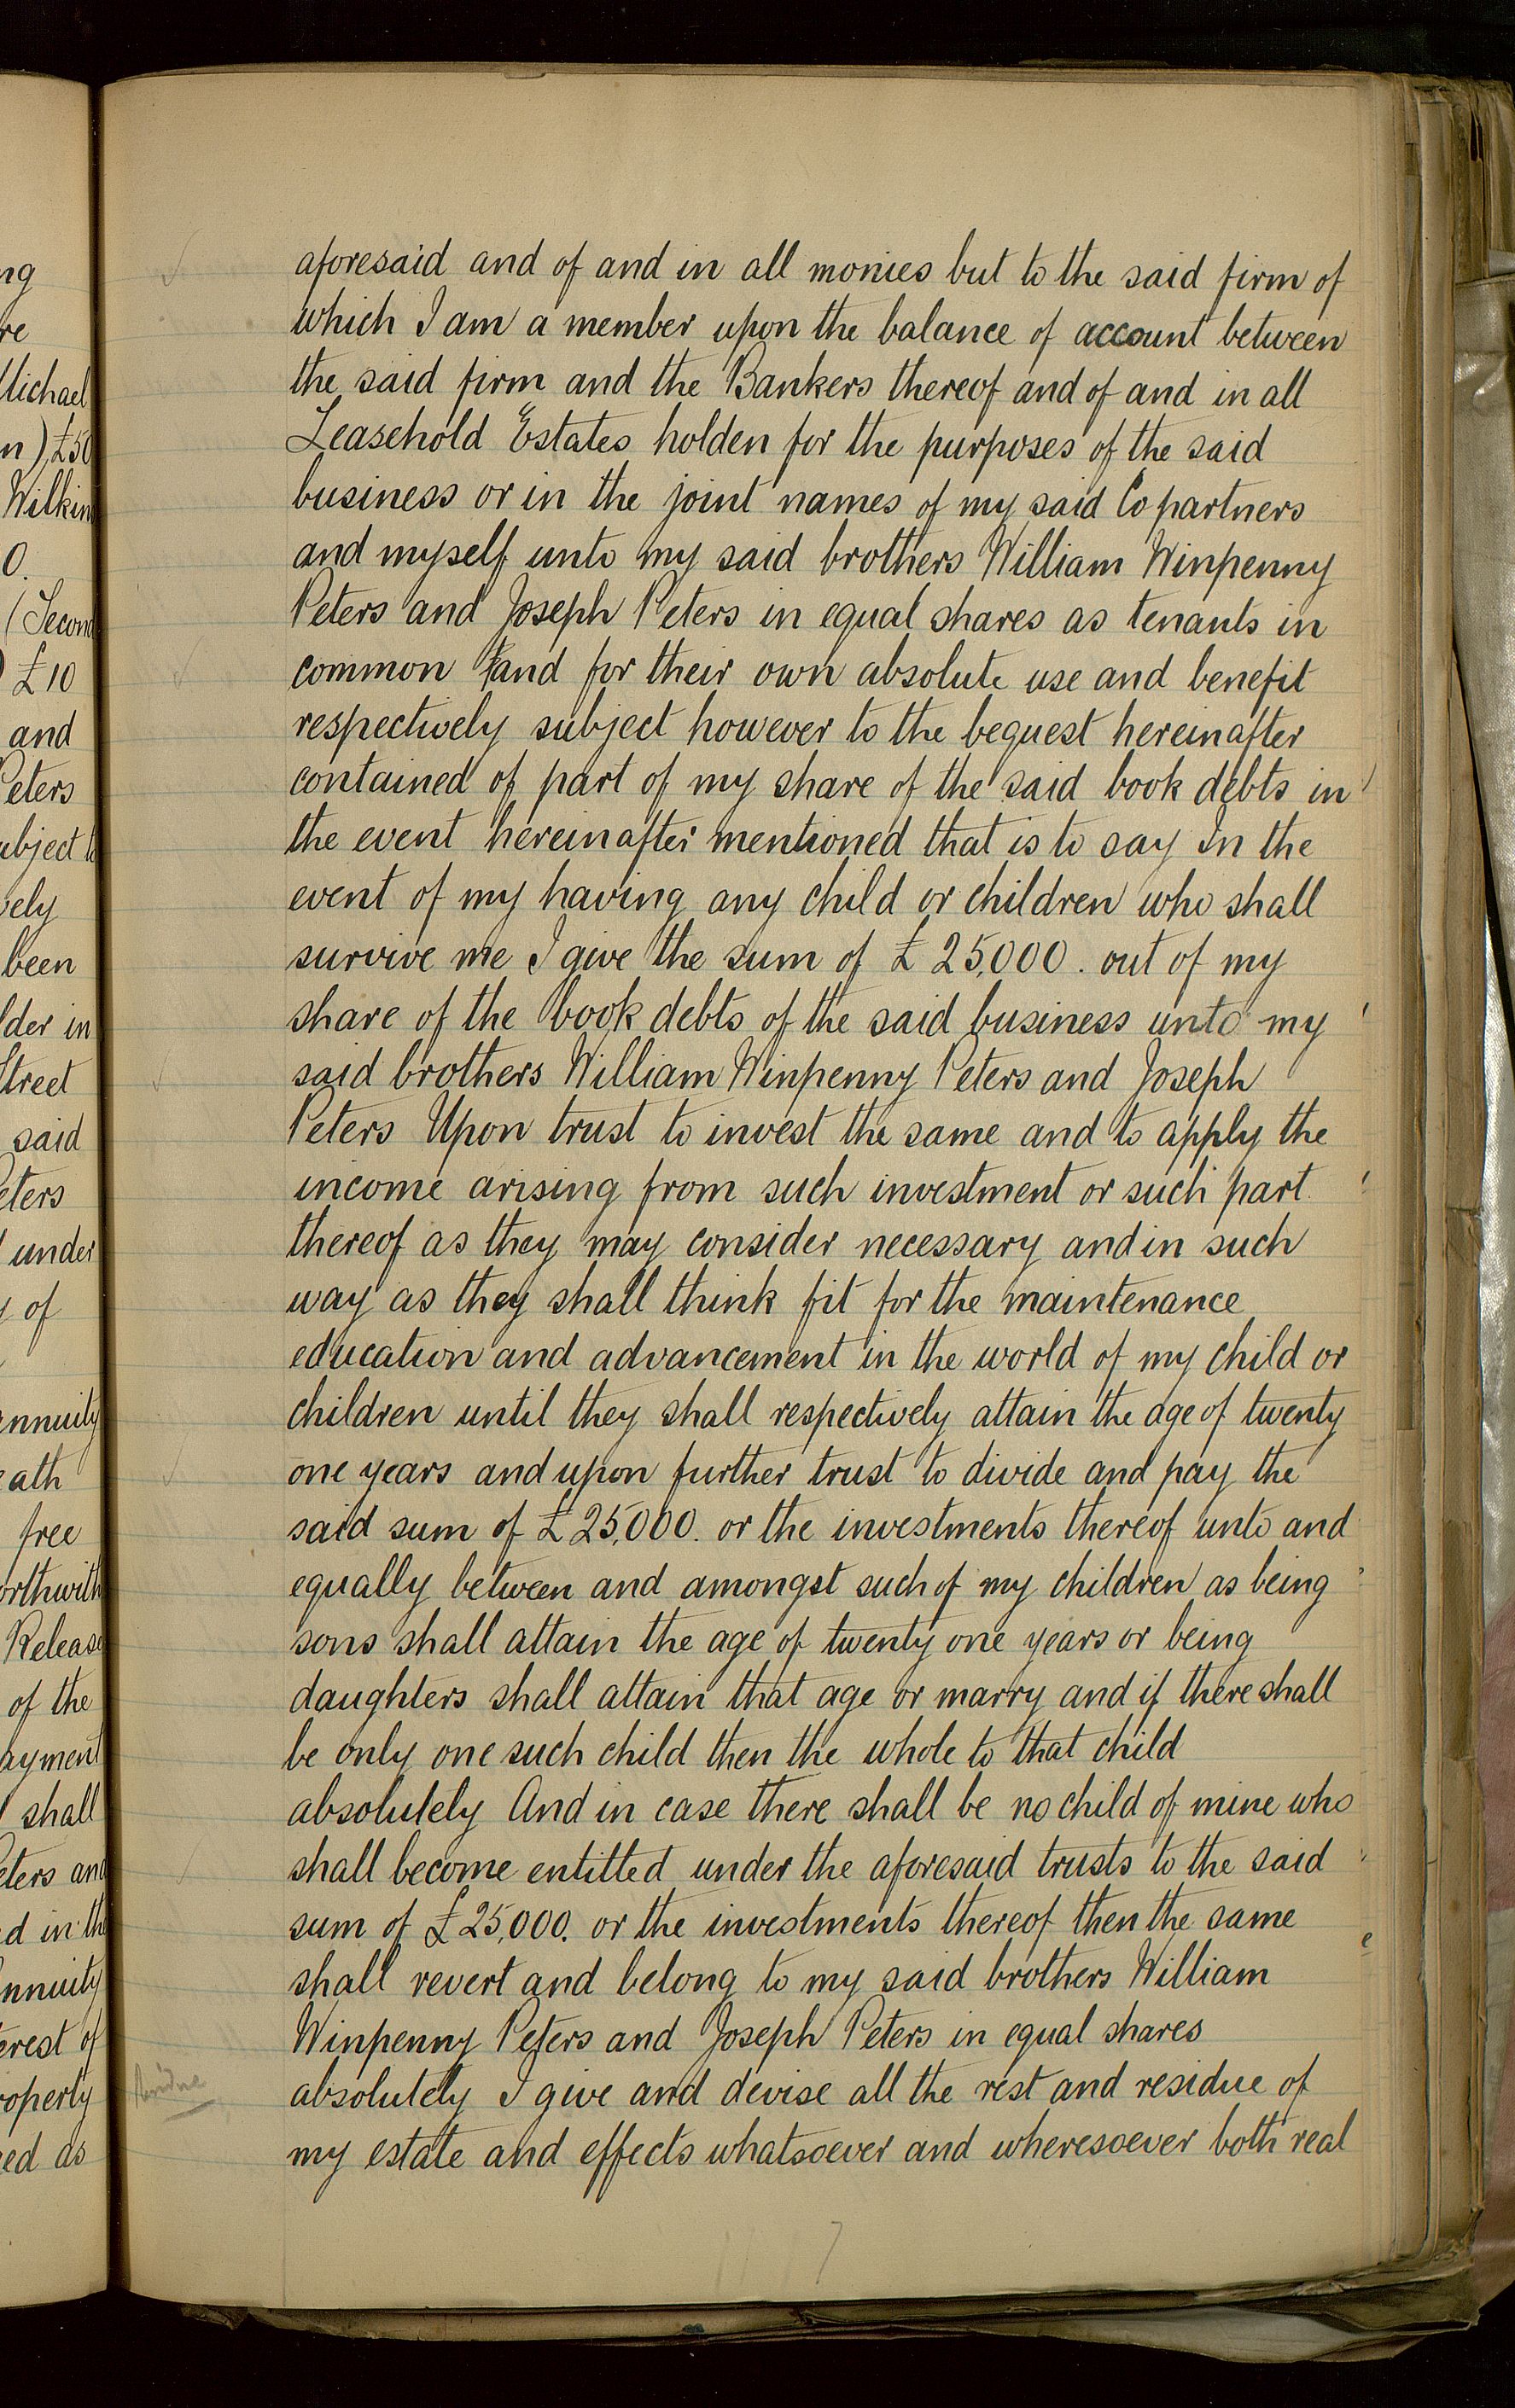 ng
re
Michael
n) £50
Wilkin
0.
(Second
) £10
and
Peters
ubject to
vely
been
lder in
Street
said
Peters
under
y of
nnuity
eath
free
orthwith
Release
of the
ayment
shall
eters and
ed in the
nnuity
erest of
roperty
ed as
aforesaid and of and in all monies but to the said firm of
which I am a member upon the balance of account between
the said firm and the Bankers thereof and of and in all
Leasehold Estates holden for the purposes of the said
business or in the joint names of my said Co partners
and myself unto my said brothers William Winpenny
Peters and Joseph Peters in equal shares as tenants in
common and for their own absolute use and benefit
respectively subject however to the bequest hereinafter
contained of part of my share of the said book debts in
the event hereinafter mentioned that is to say In the
event of my having any child or children who shall
survive me I give the sum of £25,000. out of my
share of the book debts of the said business unto my
said brothers William Winpenny Peters and Joseph
Peters Upon trust to invest the same and to apply the
income arising from such investment or such part
thereof as they may consider necessary and in such
way as they shall think fit for the maintenance
education and advancement in the world of my child or
children until they shall respectively attain the age of twenty
one years and upon further trust to divide and pay the
said sum of £25,000. or the investments thereof unto and
equally between and amongst such of my children as being
sons shall attain the age of twenty one years or being
daughters shall attain that age or marry and if there shall
be only one such child then the whole to that child
absolutely And in case there shall be no child of mine who
shall become entitled under the aforesaid trusts to the said
sum of £25,000. or the investments thereof then the same
shall revert and belong to my said brothers William
Winpenny Peters and Joseph Peters in equal shares
Residue
absolutely I give and devise all the rest and residue of
my estate and effects whatsoever and wheresoever both real
7